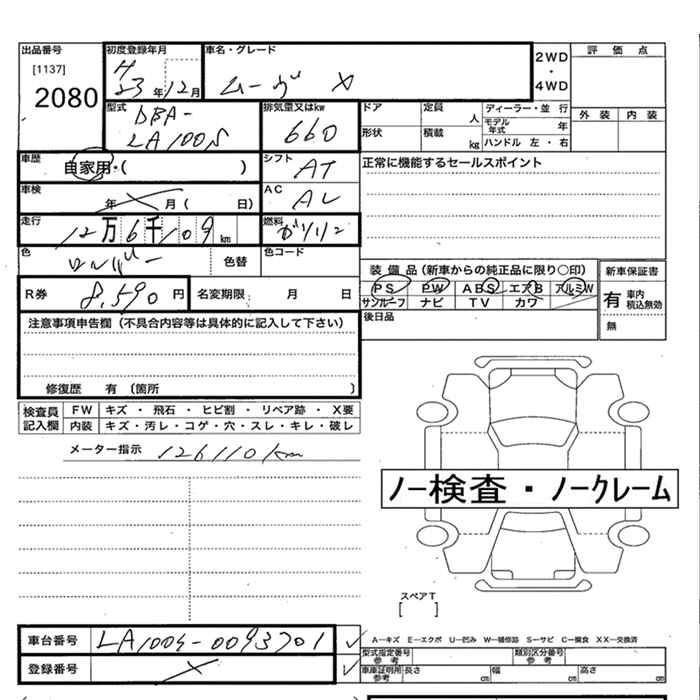 出品番号
[1137]
2080
初度登録年月
H
23年12月
車名・グレード
ムーヴ X
2WD
・
4WD
評価点
外装 内装
型式
DBA-
LA100S
排気量又はkw
660
ドア
定員
人
形状
積載
kg
ディーラー・並行
モデル年式
年
ハンドル 左・右
車歴
自家用・( )
シフト
AT
車検
年 × 月( 日)
AC
正常に機能するセールスポイント
走行
12万6千109km
燃料
ガソリン
色
色替
色コード
装備品(新車からの純正品に限り○印)
PS PW ABS エアB アルミW
サンルーフ ナビ TV カワ
新車保証書
有 車内積込無効
無
R券
8,590円
名変期限 月 日
後日品
注意事項申告欄(不具合内容等は具体的に記入して下さい)
修復歴 有(箇所 )
検査員記入欄
FW キズ・飛石・ヒビ割・リペア跡・X要
内装 キズ・汚レ・コゲ・穴・スレ・キレ・破レ
メーター指示 126110km
ノー検査・ノークレーム
スペアT
[ ]
車台番号
LA100S-0093701
登録番号
×
A—キズ E—エクボ U—凹み W—補修跡 S—サビ C—腐食 XX—交換済
型式指定番号
参考
類別区分番号
参考
車庫証明用
参考
長さ cm 幅 cm 高さ cm